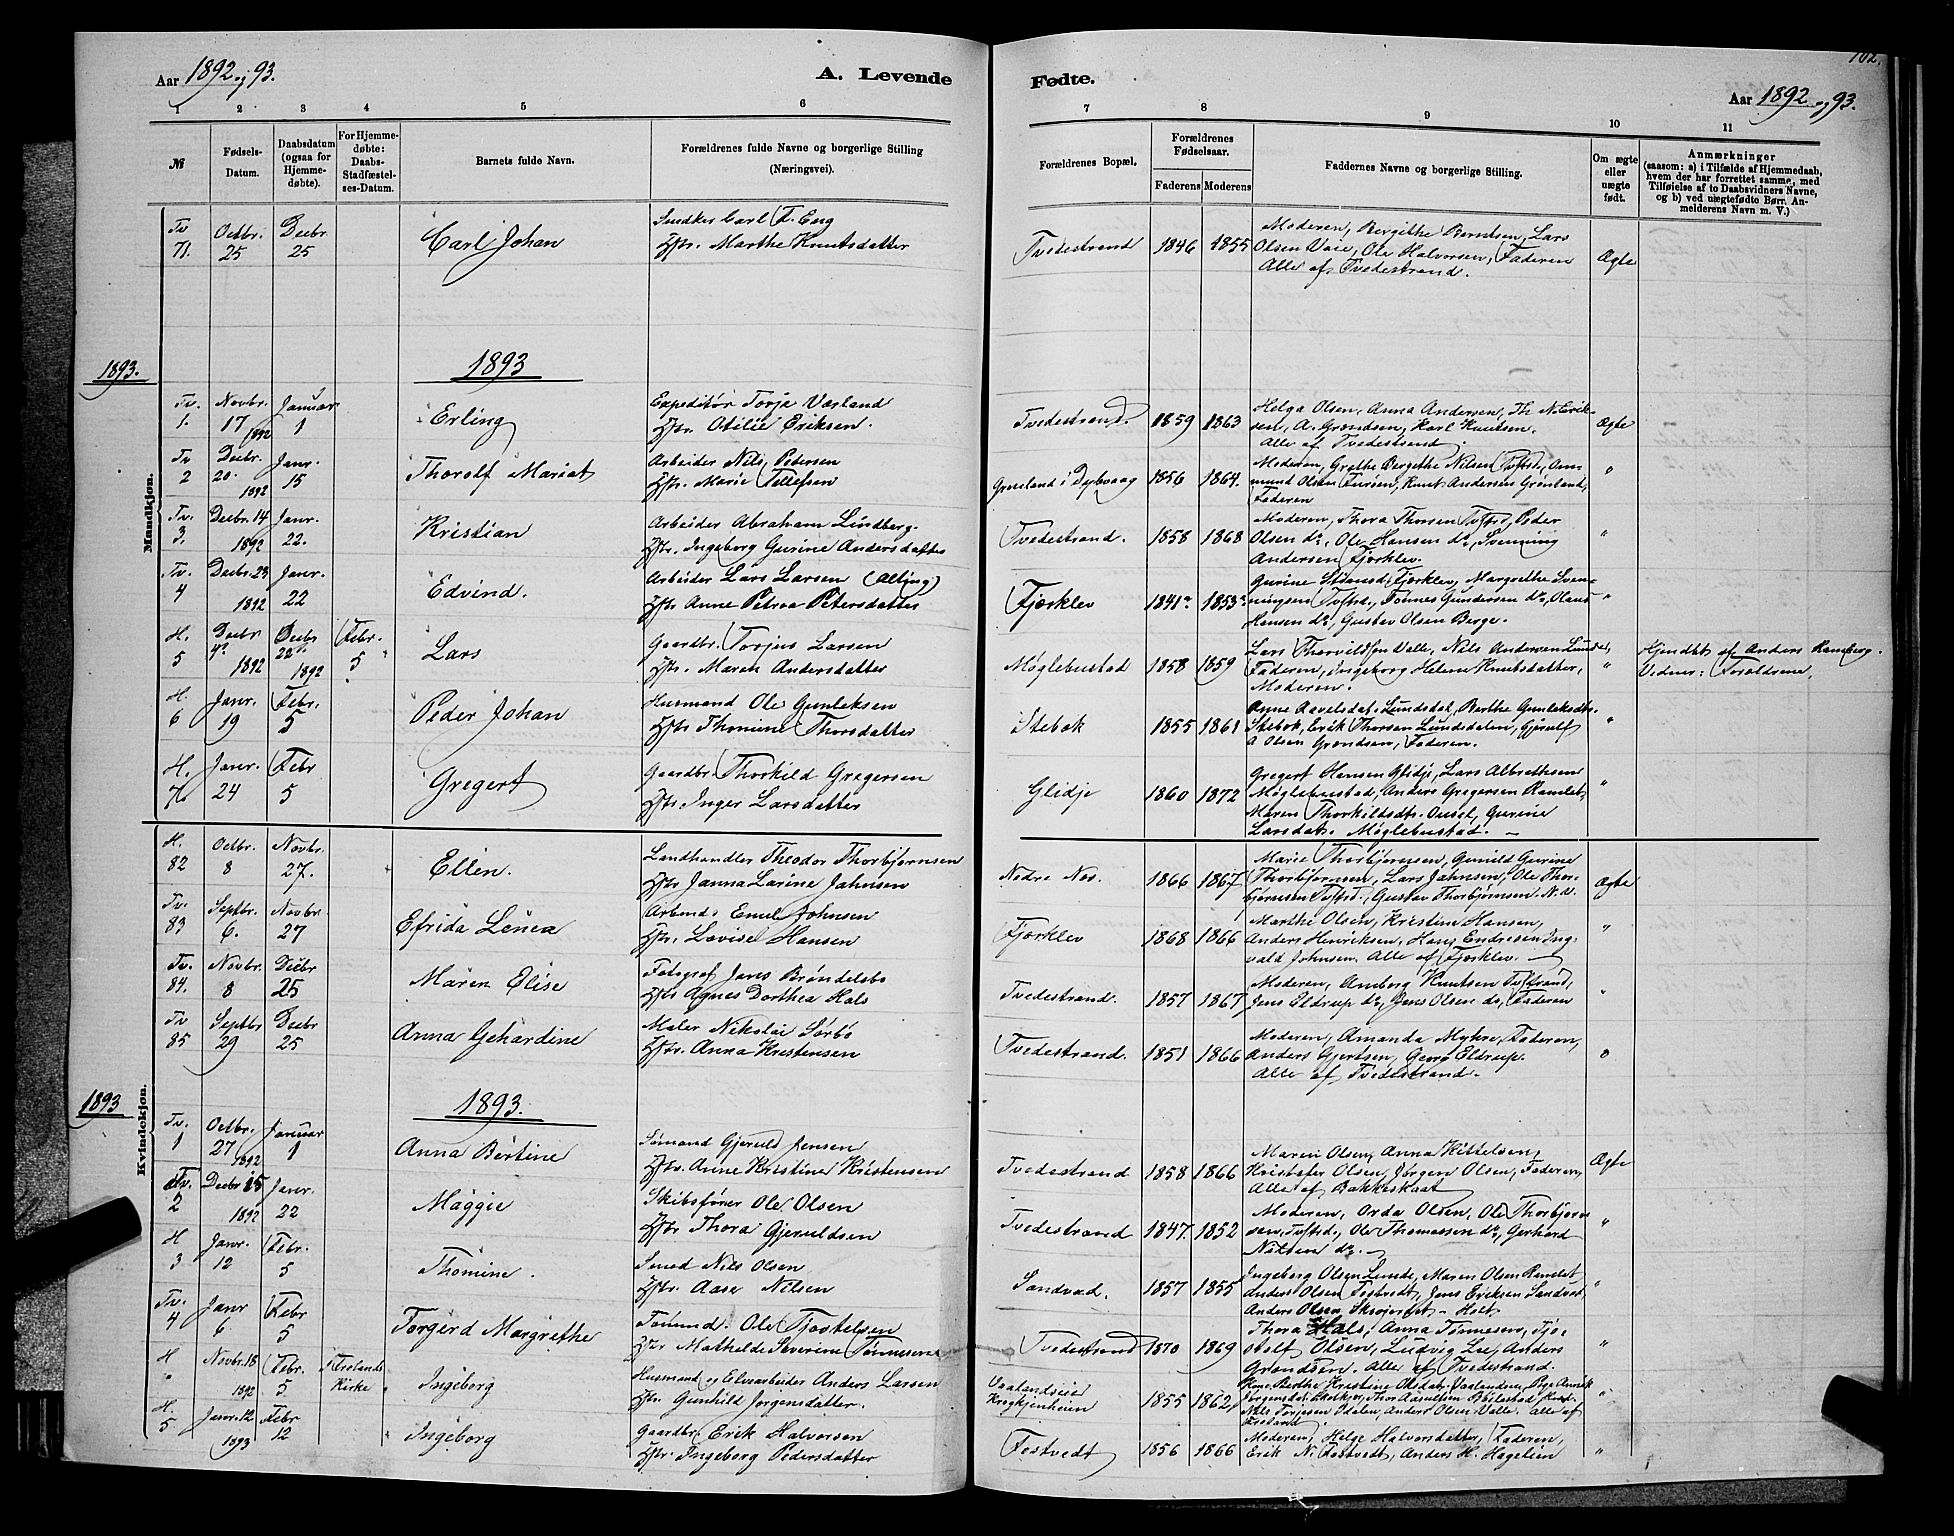 Aar 1892 og 93.
A. Levende
Fødte.
102.
Aar 1892 og 93.
1 2 3 4 5 6 7 8 9 10 11
№
Fødsels-
Datum.
Daabsdatum
(ogsaa for
Hjemme-
døbte).
For Hjemme-
døbte:
Daabs-
Stadfæstel-
ses-Datum.
Barnets fulde Navn.
Forældrenes fulde Navne og borgerlige Stilling
(Næringsvei).
Forældrenes Bopæl.
Forældrenes
Fødselsaar.
Faderens Moderens
Faddernes Navne og borgerlige Stilling.
Om ægte
eller
uægte
født.
Anmærkninger
(saasom: a) i Tilfælde af Hjemmedaab,
hvem der har forrettet samme, med
Tilføielse af to Daabsvidners Navne,
og b) ved uægtefødte Børn An-
melderens Navn m. V.)
Mandkjøn.
Tv 71. Octbr. 25 Decbr 25 Carl Johan
Snedker Carl F. Eng
Hstr. Marthe Knutsdatter
Tvedestrand 1846 1855
Moderen, Bergithe Berntsen, Lars
Olsen Vaie, Ole Halvorsen, Faderen
Alle af Tvedestrand.
Ægte
1893.
1893
Tv. 1. Novbr. 17 1892 Januar 1 Erling
Expeditør Torje Værland
Hstr. Otilie Eriksen.
Tvedestrand. 1859 1863
Helga Olsen, Anna Andersen, Th. N. Erik-
sen, A. Grondsen, Karl Knutsen.
Alle af Tvedestrand.
Ægte
Tv 2 Decbr. 20. 1892 Janr. 15 Thorolf Mariat
Arbeider Nils Pedersen
Hstr. Marie Tellefsen
Grønland i Dybvaag 1856 1864.
Moderen, Grethe Bergethe Nilsen Tvftst, Am-
mund Olsen Fursen, Knut Andersen Grønland,
Faderen
"
Tv. 3. Decbr. 14 1892 Janr. 22. Kristian
Arbeider Abraham Lindberg.
Hstr. Ingeborg Gurine Andersdatter
Tvedestrand. 1858 1868
Moderen, Thora Thorsen Tvftst, Peder
Olsen do, Ole Hansen do, Svenning
Andersen Fjærklev.
"
Tv. 4 Decbr. 23 1892 Janr. 22 Edvind.
Arbeider Lars Larsen
Hstr. Anne Petrea Petersdatter
Fjærklev 1841 1853
Gurine Fjærklev, Margrethe Sven-
ningsen Tvftst., Tønnes Gundersen do, Olaus
Hansen do, Gustav Olsen Berge.
"
H. 5 Decbr 4 1892 Decbr 22 1892 Febr. 5 Lars
Gaardbr. Torjus Larsen
Hstr. Maren Andersdatter
Møglebustad 1858 1859
Lars Thorvildsen Valle, Nils Andersen Lunde,
Faderen, Ingeborg Helene Knutsdatter,
Moderen.
"
Hjmdbt af Anders Ramberg.
Vidner: Forældrene.
H. 6 Janr. 19 Febr. 5 Peder Johan
Husmand Ole Gunleksen
Hstr. Thomine Thorsdatter
Stebok 1855 1861
Anne Lundedal, Berthe Gunleksdtr.
Stebok, Erik Thorsen Lundedalen, Gjerulf
Olsen Grondsen, Faderen.
"
H. 7. Janr. 24 Febr 5 Gregert
Gaardbr. Thorkild Gregersen
Hstr. Inger Larsdatter
Glidje 1860 1872
Gregert Hansen Glidje, Lars Albrethsen
Møglebustad, Anders Gregersen Ramlet,
Maren Thorkildsdt. Ousel, Gurine
Larsdat. Møglebustad.
"
Kvindekjøn.
H. 82 Octbr. 8 Novbr. 27. Ellen.
Landhandler Theodor Thorbjørnsen
Hstr Janna Larine Jahnsen
Nedre Næs. 1866 1867
Marie Thorbjørnsen, Gunild Gurine
Thorbjørnsen, Lars Jahnsen, Ole Thor-
bjørnsen Tvftst., Gustav Thorbjørnsen
Ægte
Tv. 83 Septbr. 6. Novbr. 27 Efrida Linea
Arbend. Emil Johnsen
Hstr. Lovise Hansen
Fjærklev 1868 1866
Marthe Olsen, Kristine Hansen,
Anders Henriksen, Hans Endresen Ing-
vald Johnsen. Alle af Fjærklev.
"
Tv. 84. Novbr. 8 Decbr 25 Maren Elise
Fotograf Jans Brøndelsbo
Hstr Agnes Dorthea Hals
Tvedestrand. 1857 1867
Moderen, Amborg Knutsen Tvftrand,
Jens Eldrup do, Jens Olsen do, Faderen
"
Tv 85 Septbr 29 Decbr 25 Anna Gehardine
Maler Nikolai Sørbø
Hstr. Anna Kristensen
Tvedestrand. 1851 1866
Moderen, Amanda Myhre, Faderen,
Anders Gjertsen, Georg Eldrup.
Alle af Tvedestrand.
"
1893
1893.
Tv. 1 Octbr. 27 1892 Januar 1 Anna Bertine
Sømand Gjeruld Jensen
Hstr. Anne Kristine Kristensen
Tvedestrand 1858 1866
Maren Olsen, Anna Kittelsen,
Kristofer Olsen, Jørgen Olsen, Faderen,
Alle af Bakkeskaat
Ægte
Tv. 2 Decbr 15 1892 Janr. 22 Maggie
Skibsfører Ole Olsen
Hstr Thora Gjeruldsen
Tvedestrand 1847. 1852
Moderen, Orda Olsen, Ole Thorbjørn-
sen, Tvftst., Ole Thomassen do, Gerhard
Nilsen do.
"
H 3 Janr. 12 Febr. 5 Thomine.
Smed Nils Olsen
Hstr. Aase Nilsen
Sandvad. 1857 1855
Ingeborg Olsen Lunde, Maren Olsen Ramlet
Anders Olsen Festvedt, Jens Eriksen Sandvad,
Anders Olsen Holt
"
Tv. 4 Janr 6. Febr 5 Torgerd Margrethe
Tømmd. Ole Tjostelsen
Hstr Mathilde Severine Tønnesen
Tvedestrand 1870 1869
Thora Hals, Anna Tønnesen, Tjo-
stolf Olsen, Ludvig Lie, Anders
Grondsen. Alle af Tvedestrand.
"
H " Novbr. 18 1892 Febr. 5 Frolands Kirke Ingeborg
Husmand og Elvearbeider Anders Larsen
Hstr. Gunhild Jørgensdatter.
Vaalandseier
Krogkjenheien 1855 1862
Kone Berthe Kristine
Nils Torjesen Idalen, Anders Olsen Valle. Alle af
Froland
"
H. 5 Janr. 12 1893 Febr 12 Ingeborg
Gaardbr. Erik Halvorsen
Hstr Ingeborg Pedersdatter
Festvedt 1856 1866
Moderen, Helge Halvorsdatter, Faderen,
Erik N. Festvedt, Anders H. Hageliin
"